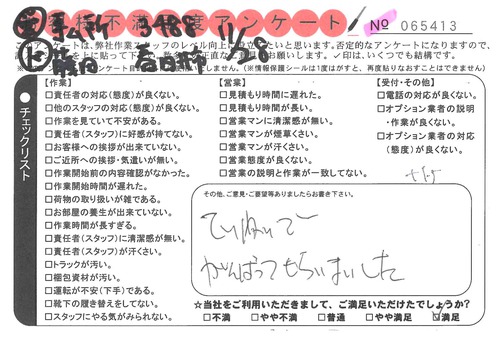 お客様不満足度アンケート
№ 065413
3488 11/28
このアンケートは、弊社作業スタッフのレベル向上に役立たせたいと思います。否定的なアンケートになりますので、
ご満足いただけましたでしょうか?
✓印は、いくつでも結構です。
(※情報保護シールは1度はがすと、再度貼りなおすことはできません)
●チェックリスト
【作業】
□責任者の対応(態度)が良くない。
□他のスタッフの対応(態度)が良くない。
□作業を見ていて不安がある。
□責任者(スタッフ)に好感が持てない。
□お客様への挨拶が出来ていない。
□ご近所への挨拶・気遣いが無い。
□作業開始前の内容確認がなかった。
□作業開始時間が遅れた。
□荷物の取り扱いが雑である。
□お部屋の養生が出来ていない。
□作業時間が長すぎる。
□責任者(スタッフ)に清潔感が無い。
□責任者(スタッフ)が汗くさい。
□トラックが汚い。
□梱包資材が汚い。
□運転が不安(下手)である。
□靴下の履き替えをしてない。
□スタッフにやる気がみられない。
【営業】
□見積もり時間に遅れた。
□見積もり時間が長い。
□営業マンに清潔感が無い。
□営業マンが煙草くさい。
□営業マンが汗くさい。
□営業態度が良くない。
□営業の説明と作業が一致してない。
【受付・その他】
□電話の対応が良くない。
□オプション業者の説明
・作業が良くない。
□オプション業者の対応
(態度)が良くない。
その他、ご意見・ご要望等ありましたらお書き下さい。
ていねいで
がんばってもらいました
☆当社をご利用いただきまして、ご満足いただけたでしょうか?
□不満 □やや不満 □普通 □やや満足 ☑満足